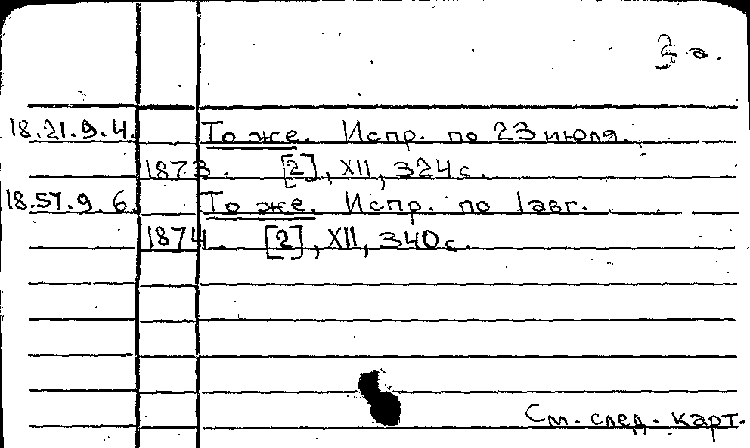 3 а.
18.21.9.4. То же. Испр. по 23 июля.
1873. [2], XII, 324 с.
18.57.9.6. То же. Испр. по 1 авг.
1874. [2], XII, 340 с.
См. след. карт.